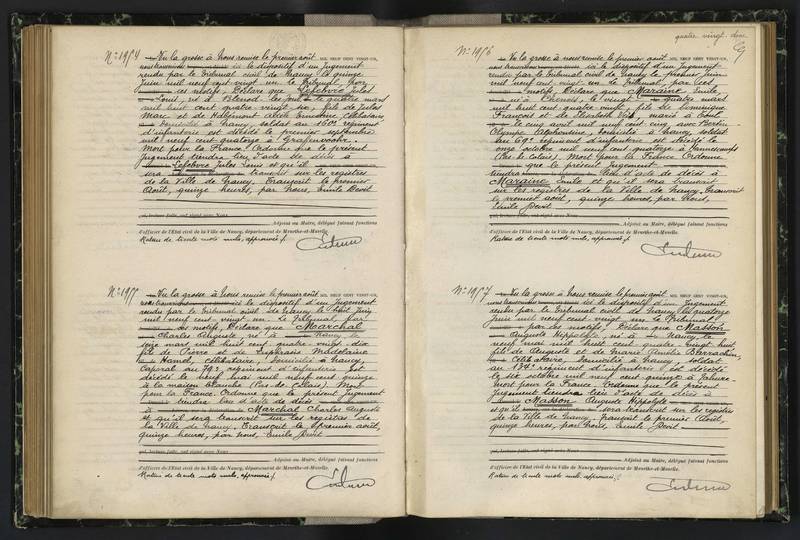 Nº 1954 Vu la grosse à Nous remise le premier août MIL NEUF CENT VINGT-UN,
le dispositif d'un Jugement
rendu par le Tribunal civil de Nancy le quinze
Juin mil neuf cent vingt un. Le Tribunal, Par
ces motifs, Déclare que Lefebvre Jules
Louis, né à Blénod, le quatre mars
mil huit cent quatre vingt six, fils de Jules
Marc et de célibataire
domicilié à Nancy, soldat au 160e régiment
d'infanterie est décédé le premier septembre
mil neuf cent quatorze à
Mort pour la France. Ordonne que le présent
Jugement tiendra lieu d'acte de décès à
Lefebvre Jules Louis et qu'il
sera transcrit sur les registres
de la Ville de Nancy. Transcrit le premier
Août, quinze heures, par Nous, Emile Devit
qui, lecture faite, ont signé avec Nous
Adjoint au Maire, délégué faisant fonctions
d'officier de l'Etat civil de la Ville de Nancy, département de Meurthe-et-Moselle.
Rature de trente mots nuls, approuvée
Nº 1955 Vu la grosse à Nous remise le premier août MIL NEUF CENT VINGT-UN,
le dispositif d'un Jugement
rendu par le Tribunal civil de Nancy le huit Juin
mil neuf cent vingt un. Le Tribunal, Par
ces motifs, Déclare que Marchal
Charles Auguste, né à Nancy le
seize mars mil huit cent quatre vingt dix
fils de Pierre et de Euphrasie Madeleine
Hamel, célibataire, domicilié à Nancy,
Caporal au 79e régiment d'infanterie est
décédé le neuf mai mil neuf cent quinze
à la maison blanche (Pas-de-Calais). Mort
pour la France. Ordonne que le présent Jugement
tiendra lieu d'acte de décès
à Marchal Charles Auguste
et qu'il sera transcrit sur les registres de
la Ville de Nancy. Transcrit le premier août,
quinze heures, par Nous, Emile Devit
qui, lecture faite, ont signé avec Nous
Adjoint au Maire, délégué faisant fonctions
d'officier de l'Etat civil de la Ville de Nancy, département de Meurthe-et-Moselle.
Rature de trente mots nuls, approuvée
quatre vingt
Nº 1956 Vu la grosse à nous remise le premier août MIL NEUF CENT VINGT-UN,
le dispositif d'un Jugement
rendu par le Tribunal civil de Nancy le premier Juin
mil neuf cent vingt-un. Le Tribunal, par ces
motifs, Déclare que Maraine Emile,
né à le quatre mars
mil huit cent fils de Dominique
François et de Elisabeth marié à
le cinq avril mil neuf cent cinq avec
Olympe Alphonsine, domicilié à Nancy, soldat
au 69e régiment d'infanterie est décédé le
onze octobre mil neuf cent quatorze à
(Pas-de-Calais). Mort pour la France. Ordonne
que le présent Jugement
tiendra lieu d'acte de décès à
Maraine Emile et qu'il sera transcrit
sur les registres de la Ville de Nancy. Transcrit
le premier août, quinze heures, par Nous,
Emile Devit
qui, lecture faite, ont signé avec Nous
Adjoint au Maire, délégué faisant fonctions
d'officier de l'Etat civil de la Ville de Nancy, département de Meurthe-et-Moselle.
Rature de trente mots nuls, approuvée
Nº 1957 Vu la grosse à Nous remise le premier août MIL NEUF CENT VINGT-UN,
le dispositif d'un Jugement
rendu par le Tribunal civil de Nancy le quatorze
Juin mil neuf cent vingt un. Le Tribunal
par ces motifs, Déclare que Masson
Auguste Hippolyte, né à Nancy, le
neuf mai mil huit cent quatre vingt huit
fils de Auguste et de Marie Amélie
Célibataire, domicilié à Nancy, soldat
au 134e régiment d'infanterie est décédé
le six octobre mil neuf cent quinze à Tahure
Mort pour la France. Ordonne que le présent
Jugement tiendra lieu d'acte de décès à
Masson Auguste Hippolyte
et qu'il sera transcrit sur les registres
de la Ville de Nancy. Transcrit le premier Août,
quinze heures, par Nous, Emile Devit
qui, lecture faite, ont signé avec Nous
Adjoint au Maire, délégué faisant fonctions
d'officier de l'Etat civil de la Ville de Nancy, département de Meurthe-et-Moselle.
Rature de trente mots nuls, approuvée